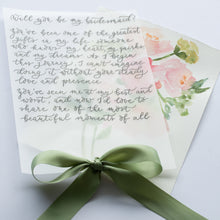 Will you be my bridesmaid?
You've been one of the greatest
gifts in my life - someone
who knows my heart, my quirks
and my dreams. As I begin
this journey, I can't imagine
doing it without your steady
love and presence.
You've seen me at my best and
worst, and now I'd love to
share one of the most
beautiful moments of all